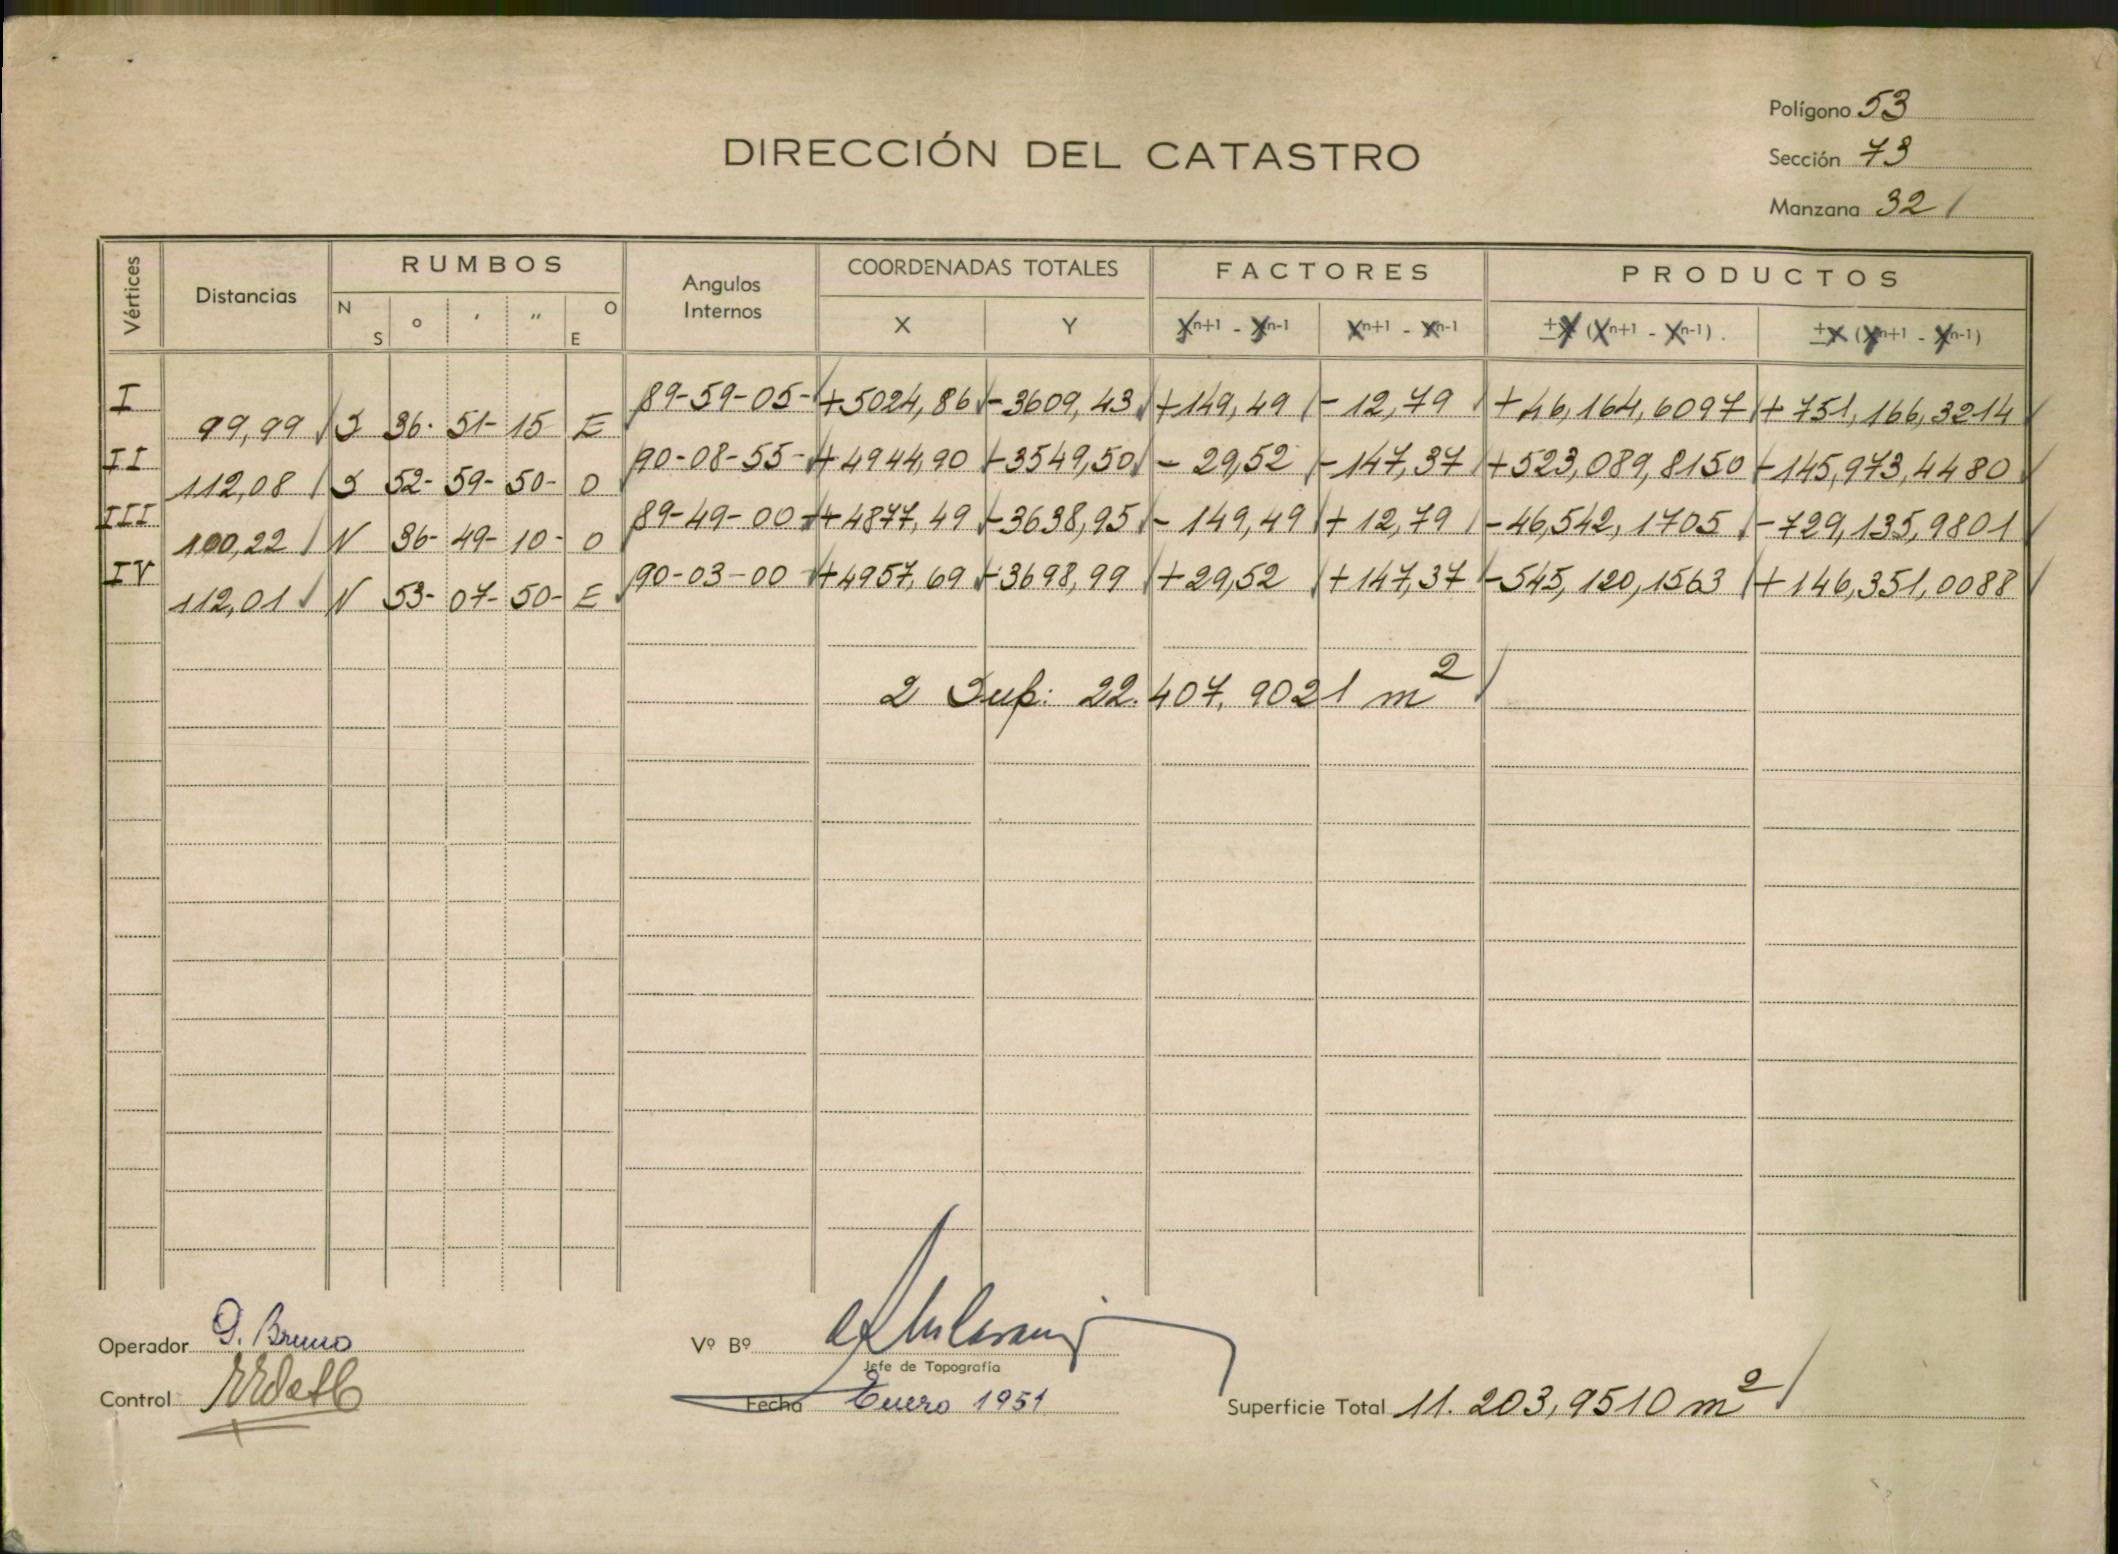 Polígono 53
DIRECCIÓN DEL CATASTRO
Sección 73
Manzana 32
Vértices Distancias RUMBOS Angulos Internos COORDENADAS TOTALES FACTORES PRODUCTOS
N S ° ′ ″ O E X Y Xⁿ⁺¹ - Xⁿ⁻¹ Xⁿ⁺¹ - Xⁿ⁻¹ ±X (Xⁿ⁺¹ - Xⁿ⁻¹). ±X (Xⁿ⁺¹ - Xⁿ⁻¹)
I 89-59-05- +5024,86 -3609,43 +149,49 -12,79 +46,164,6097 +751,166,3214
99,99 S 36- 51- 15 E
II 90-08-55- +4944,90 -3549,50 -29,52 -147,37 +523,089,8150 -145,973,4480
112,08 S 52- 59- 50- O
III 89-49-00- +4877,49 -3638,95 -149,49 +12,79 -46,542,1705 -729,135,9801
100,22 N 36- 49- 10- O
IV 90-03-00 +4957,69 -3698,99 +29,52 +147,37 -545,120,1563 +146,351,0088
112,01 N 53- 07- 50- E
2 Sup: 22.407,9021 m²
Operador G. Bruno
Vº Bº
Jefe de Topografía
Control
Fecha Enero 1951
Superficie Total 11.203,9510 m²